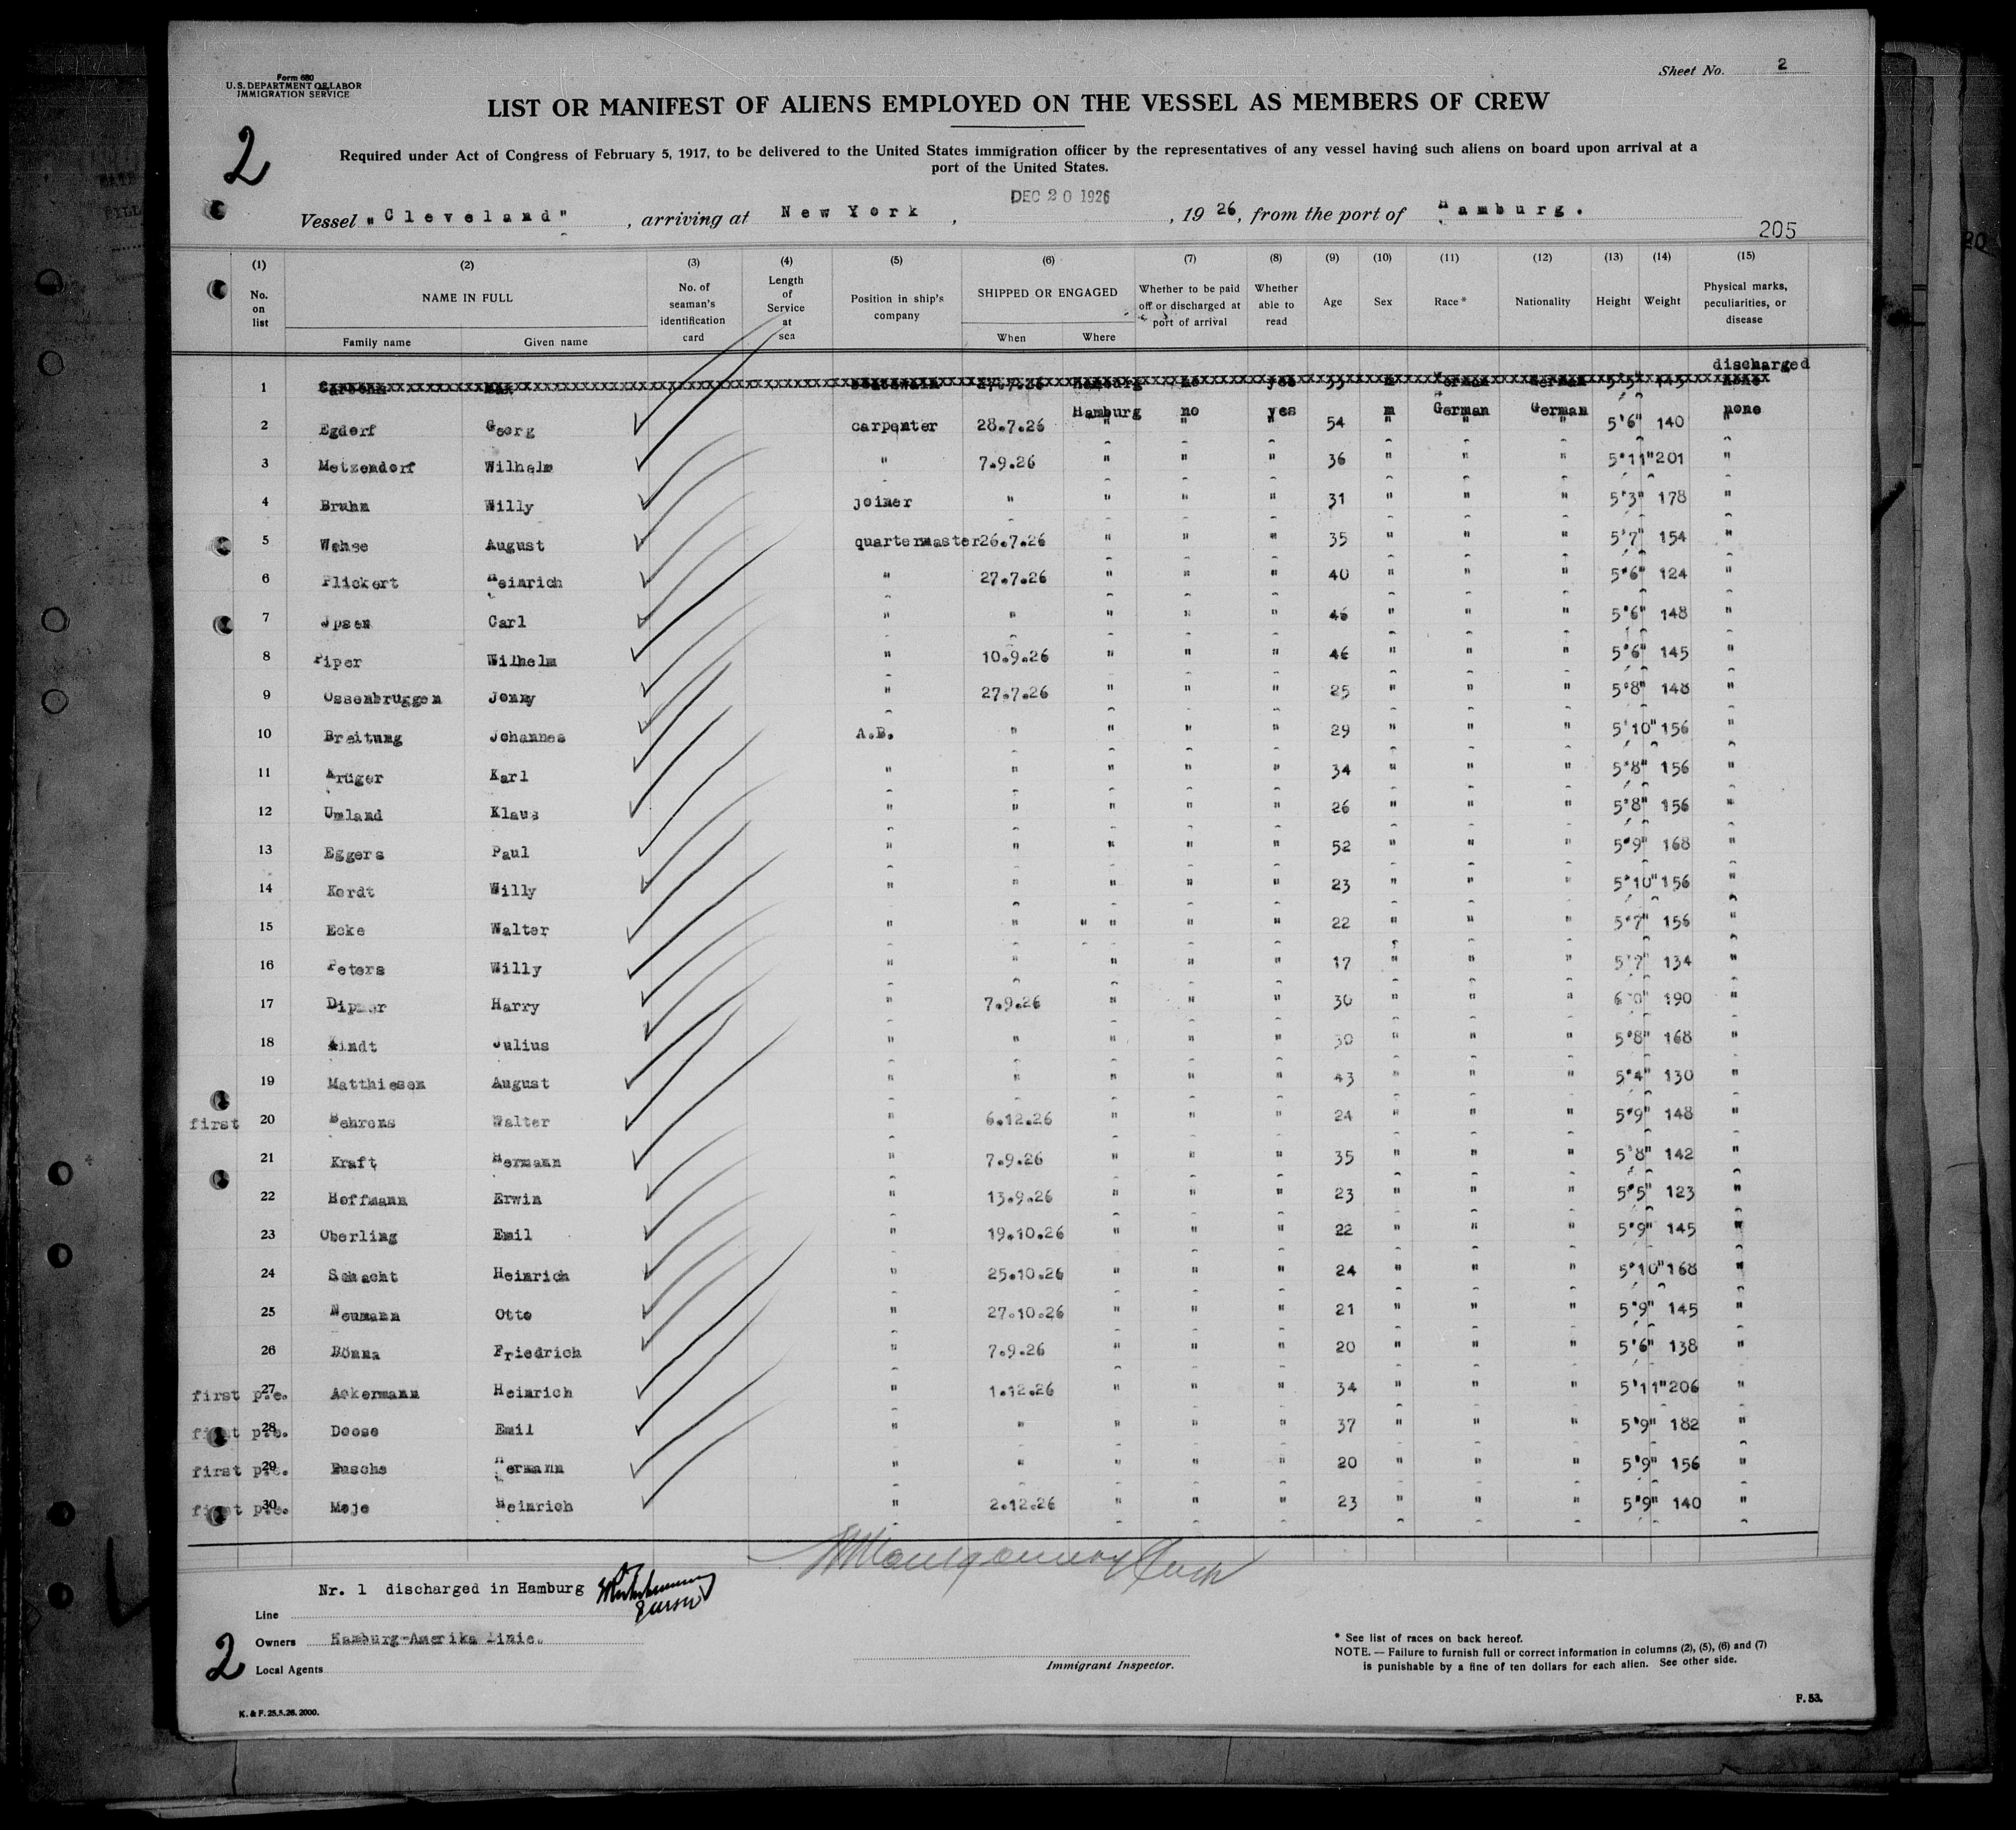 Form 680
U.S. DEPARTMENT OF LABOR
IMMIGRATION SERVICE
Sheet No. 2
LIST OR MANIFEST OF ALIENS EMPLOYED ON THE VESSEL AS MEMBERS OF CREW
2
Required under Act of Congress of February 5, 1917, to be delivered to the United States immigration officer by the representatives of any vessel having such aliens on board upon arrival at a
port of the United States.
DEC 20 1926
Vessel "Cleveland", arriving at New York, , 1926, from the port of Hamburg.
205
(1) (2) (3) (4) (5) (6) (7) (8) (9) (10) (11) (12) (13) (14) (15)
No. on list NAME IN FULL No. of seaman's identification card Length of Service at sea Position in ship's company SHIPPED OR ENGAGED Whether to be paid off or discharged at port of arrival Whether able to read Age Sex Race * Nationality Height Weight Physical marks, peculiarities, or disease
Family name Given name When Where
discharged
1 27.7.26 Hamburg no yes 33 m German German 5'5" 145 none
Hamburg no yes m German German none
2 Egdorf Georg carpenter 28.7.26 " " " 54 " " " 5'6" 140 "
3 Metzendorf Wilhelm " 7.9.26 " " " 36 " " " 5'11" 201 "
4 Bruhn Willy joiner " " " " 31 " " " 5'3" 178 "
5 Wehse August quartermaster 26.7.26 " " " 35 " " " 5'7" 154 "
6 Flickert Heinrich " 27.7.26 " " " 40 " " " 5'6" 124 "
7 Jpsen Carl " " " " " 46 " " " 5'6" 148 "
8 Piper Wilhelm " 10.9.26 " " " 46 " " " 5'6" 145 "
9 Ossenbruggen Jonny " 27.7.26 " " " 25 " " " 5'8" 148 "
10 Breitung Johannes A.B. " " " " 29 " " " 5'10" 156 "
11 Krüger Karl " " " " " 34 " " " 5'8" 156 "
12 Umland Klaus " " " " " 26 " " " 5'8" 156 "
13 Eggers Paul " " " " " 52 " " " 5'9" 168 "
14 Kordt Willy " " " " " 23 " " " 5'10" 156 "
15 Ecke Walter " " " " " " 22 " " " 5'7" 156 "
16 Peters Willy " " " " " 17 " " " 5'7" 134 "
17 Dipner Harry " 7.9.26 " " " 30 " " " 6'0" 190 "
18 Lindt Julius " " " " " 30 " " " 5'8" 168 "
19 Matthiesen August " " " " " 43 " " " 5'4" 130 "
first 20 Behrens Walter " 6.12.26 " " " 24 " " " 5'9" 148 "
21 Kraft Hermann " 7.9.26 " " " 35 " " " 5'8" 142 "
22 Hoffmann Erwin " 13.9.26 " " " 23 " " " 5'5" 123 "
23 Oberling Emil " 19.10.26 " " " 22 " " " 5'9" 145 "
24 Schacht Heinrich " 25.10.26 " " " 24 " " " 5'10" 168 "
25 Neumann Otto " 27.10.26 " " " 21 " " " 5'9" 145 "
26 Bönna Friedrich " 7.9.26 " " " 20 " " " 5'6" 138 "
first p.e. 27 Ackermann Heinrich " 1.12.26 " " " 34 " " " 5'11" 206 "
first p.e. 28 Doose Emil " " " " " 37 " " " 5'9" 182 "
first p.e. 29 Buschs Hermann " " " " " 20 " " " 5'9" 156 "
first p.e. 30 Moje Heinrich " 2.12.26 " " " 23 " " " 5'9" 140 "
Nr. 1 discharged in Hamburg
Line
Owners Hamburg-Amerika Linie.
2
Local Agents
Immigrant Inspector.
* See list of races on back hereof.
NOTE. — Failure to furnish full or correct information in columns (2), (5), (6) and (7)
is punishable by a fine of ten dollars for each alien. See other side.
K. & F. 25.5.26. 2000.
F. 53.